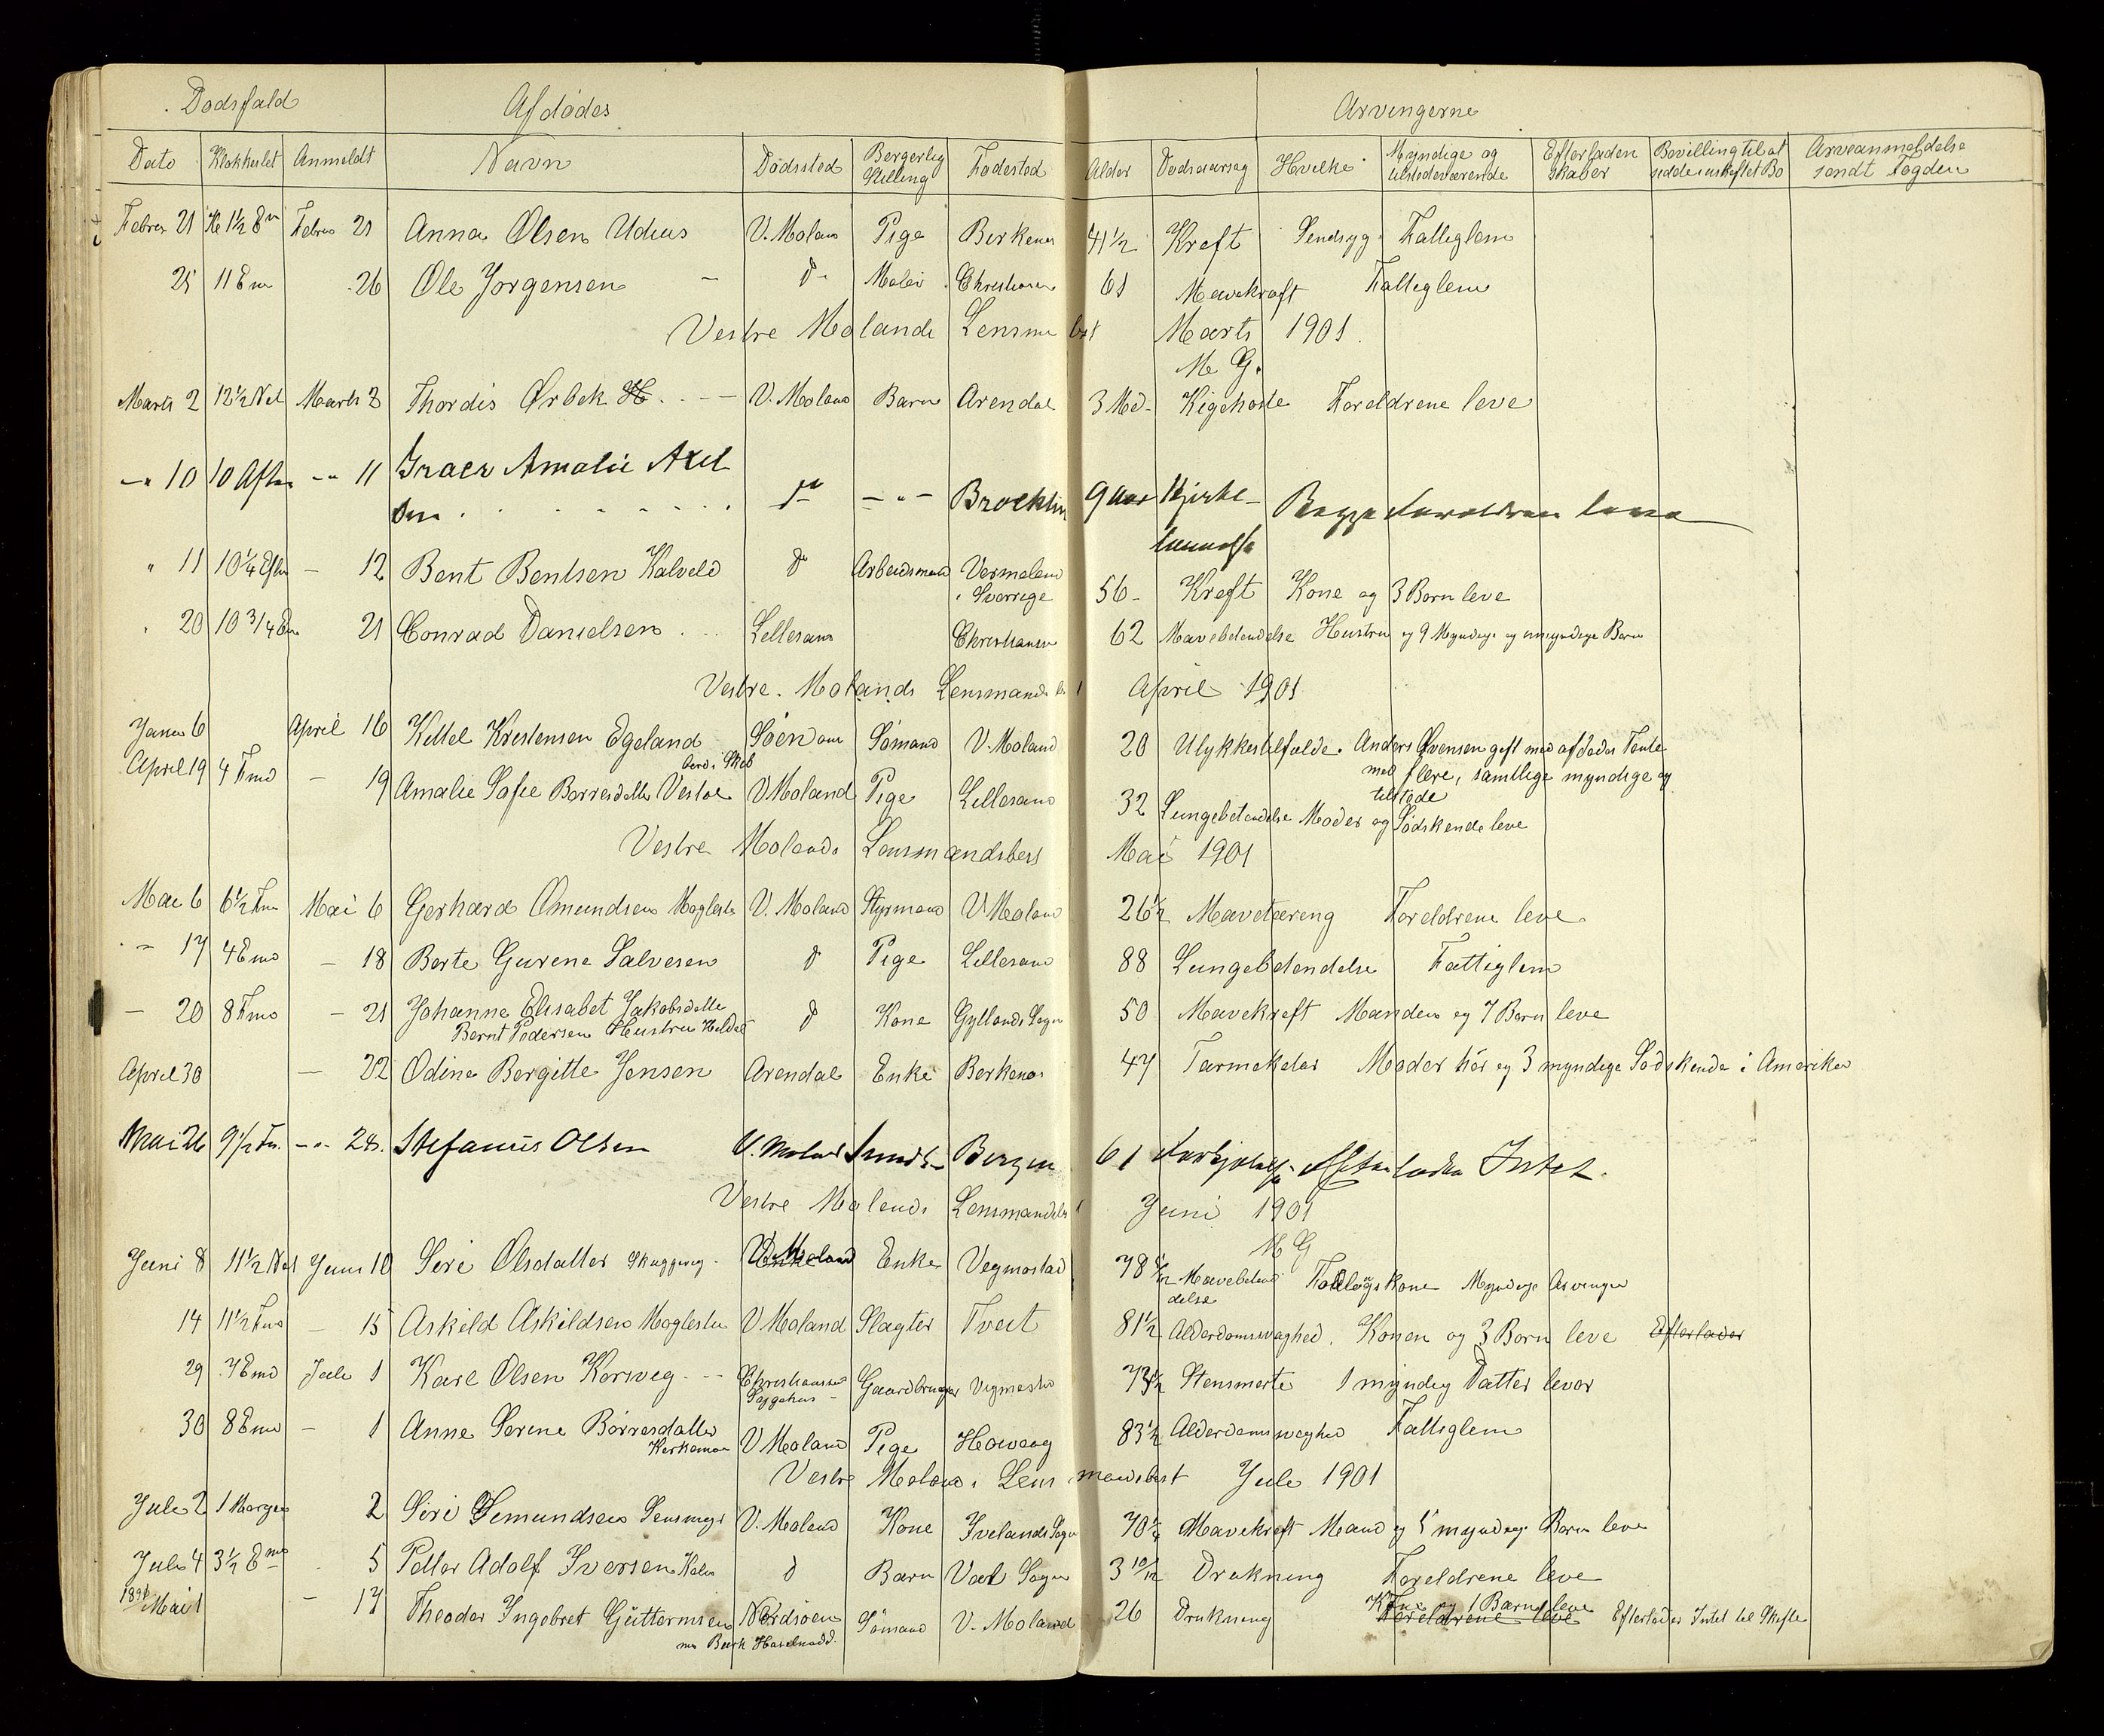 Dødsfald Afdødes Arvingerne
Dato Klokkeslet Anmeldt Navn Dødssted Borgerlig Stilling Fødested Alder Dødsaarsag Hvilke Myndige og tilstedeværende Efterladenskaber Bevilling til at sidde i uskiftet Bo Arveanmeldelse sendt Fogden
Febrer 21 Kl 1½ Em Febru 21 Anna Olsen Udus V. Moland Pige Birkenes 41½ Kreft Sendsyg Fattiglem
25 11 Em 26 Ole Jørgensen – do Maler Christiansa 61 Mavekræft Fattiglem
Vestre Molands Lensmbst Marts 1901
M G.
Marts 2 12½ Nat Marts 2 Thordis Ørbek V. Moland Barn Arendal 3 Md. Kighoste Foreldrene leve
-"- 10 10 Aften -"- 11 Grace Amalie Axel
sen do -"- Brocklin 9 Aar Hjerte- Begge Foreldren leve
" 11 10¼ Eftm – 12 Bent Bentsen Kalveld do Arbeidsmand Vermeland
i Sverrige 56 Kreft Kone og 3 Børn leve
20 10 3/4 Em 21 Conrad Danielsen Lillesand Christiansa 62 Mavebetendelse Hustru og 9 Myndige og umyndige Børn
Vestre Molands Lensmandsbst April 1901
Janu 6 April 16 Kittel Kristensen Egeland Søen om Sømand V. Moland 20 Ulykkestilfælde. Anders Ovensen gift med afdødes Tante
med flere, samtlige myndige og
tilstede
April 19 4 Fmd – 19 Amalie Sofie Børresdatter Vestøl V Moland Pige Lillesand 32 Lungebetendelse Moder og Sødskende leve
Vestre Molands Lensmandsbest Mai 1901
Mai 6 6½ Fm Mai 6 Gerhard Omundsen Moglestu V. Moland Styrmand V Moland 26½ Mavetæring Foreldrene leve
-"- 17 4 Emd – 18 Berte Gurine Salvesen do Pige Lillesand 88 Lungebetendelse Fattiglem
– 20 8 Fmd – 21 Johanne Elisabet Jakobsdatter
Bernt Pedersen Hustru do Kone Gyllands Sogn 50 Mavekreft Manden og 7 Børn leve
April 30 – 22 Odine Bergitte Jensen Arendal Enke Berkenes 47 Tarmekatar Moder hér og 3 myndige Sødskende i Amerika
Mai 26 9½ Fm. -"- 28. Stefanus Olsen V. Moland Bergen 61 Efterlader Intet.
Vestre Molands Lensmandsbst Juni 1901
M G
Juni 8 11½ Nat Juni 10 Siri Olsdatter V. Moland Enke Vegmostad 78 Mavebeten
delse Føderaadskone Myndige Arvinger
14 11½ Fmd – 15 Askild Askildsen Moglestu V Moland Slagter Tveit 81½ Alderdomsvaghed. Konen og 3 Børn leve Efterlader
29 7 Emd Juli 1 Karl Olsen Korsveg Christiansand
Sygehus Gaardbruger Vegmostad 73½ Stensmerte 1 myndig Datter lever
30 8 Emd – 1 Anne Serine Børresdatter
V Moland Pige Høvaag 83½ Alderdomsvaghed Fattiglem
Vestre Molands Lensmandsbst Juli 1901
Juli 2 1 Morgen 2 Siri Gemundsen V. Moland Kone Ivelands Sogn 70 Mavekreft Mand og 5 myndige Børn leve
Juli 4 3½ Emd 5 Petter Adolf Iversen do Barn Sogn 3 10/12 Drukning Foreldrene leve
1896
Mai 1 – 17 Theodor Ingebret Guttormsen Nordsøen Sømand V. Moland 26 Drukning Kone og 1 Barn leve Efterlader Intet til Skifte
Foreldrene leve